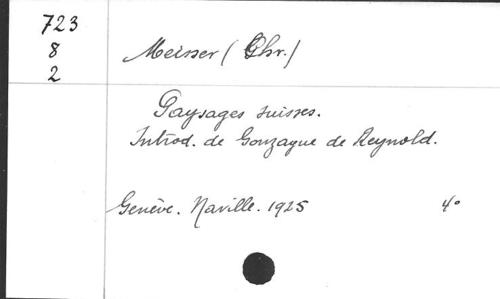 723
8
2
Meisser (Chr.)
Paysages suisses.
Introd. de Gonzague de Reynold.
Genève. Naville. 1925 4°